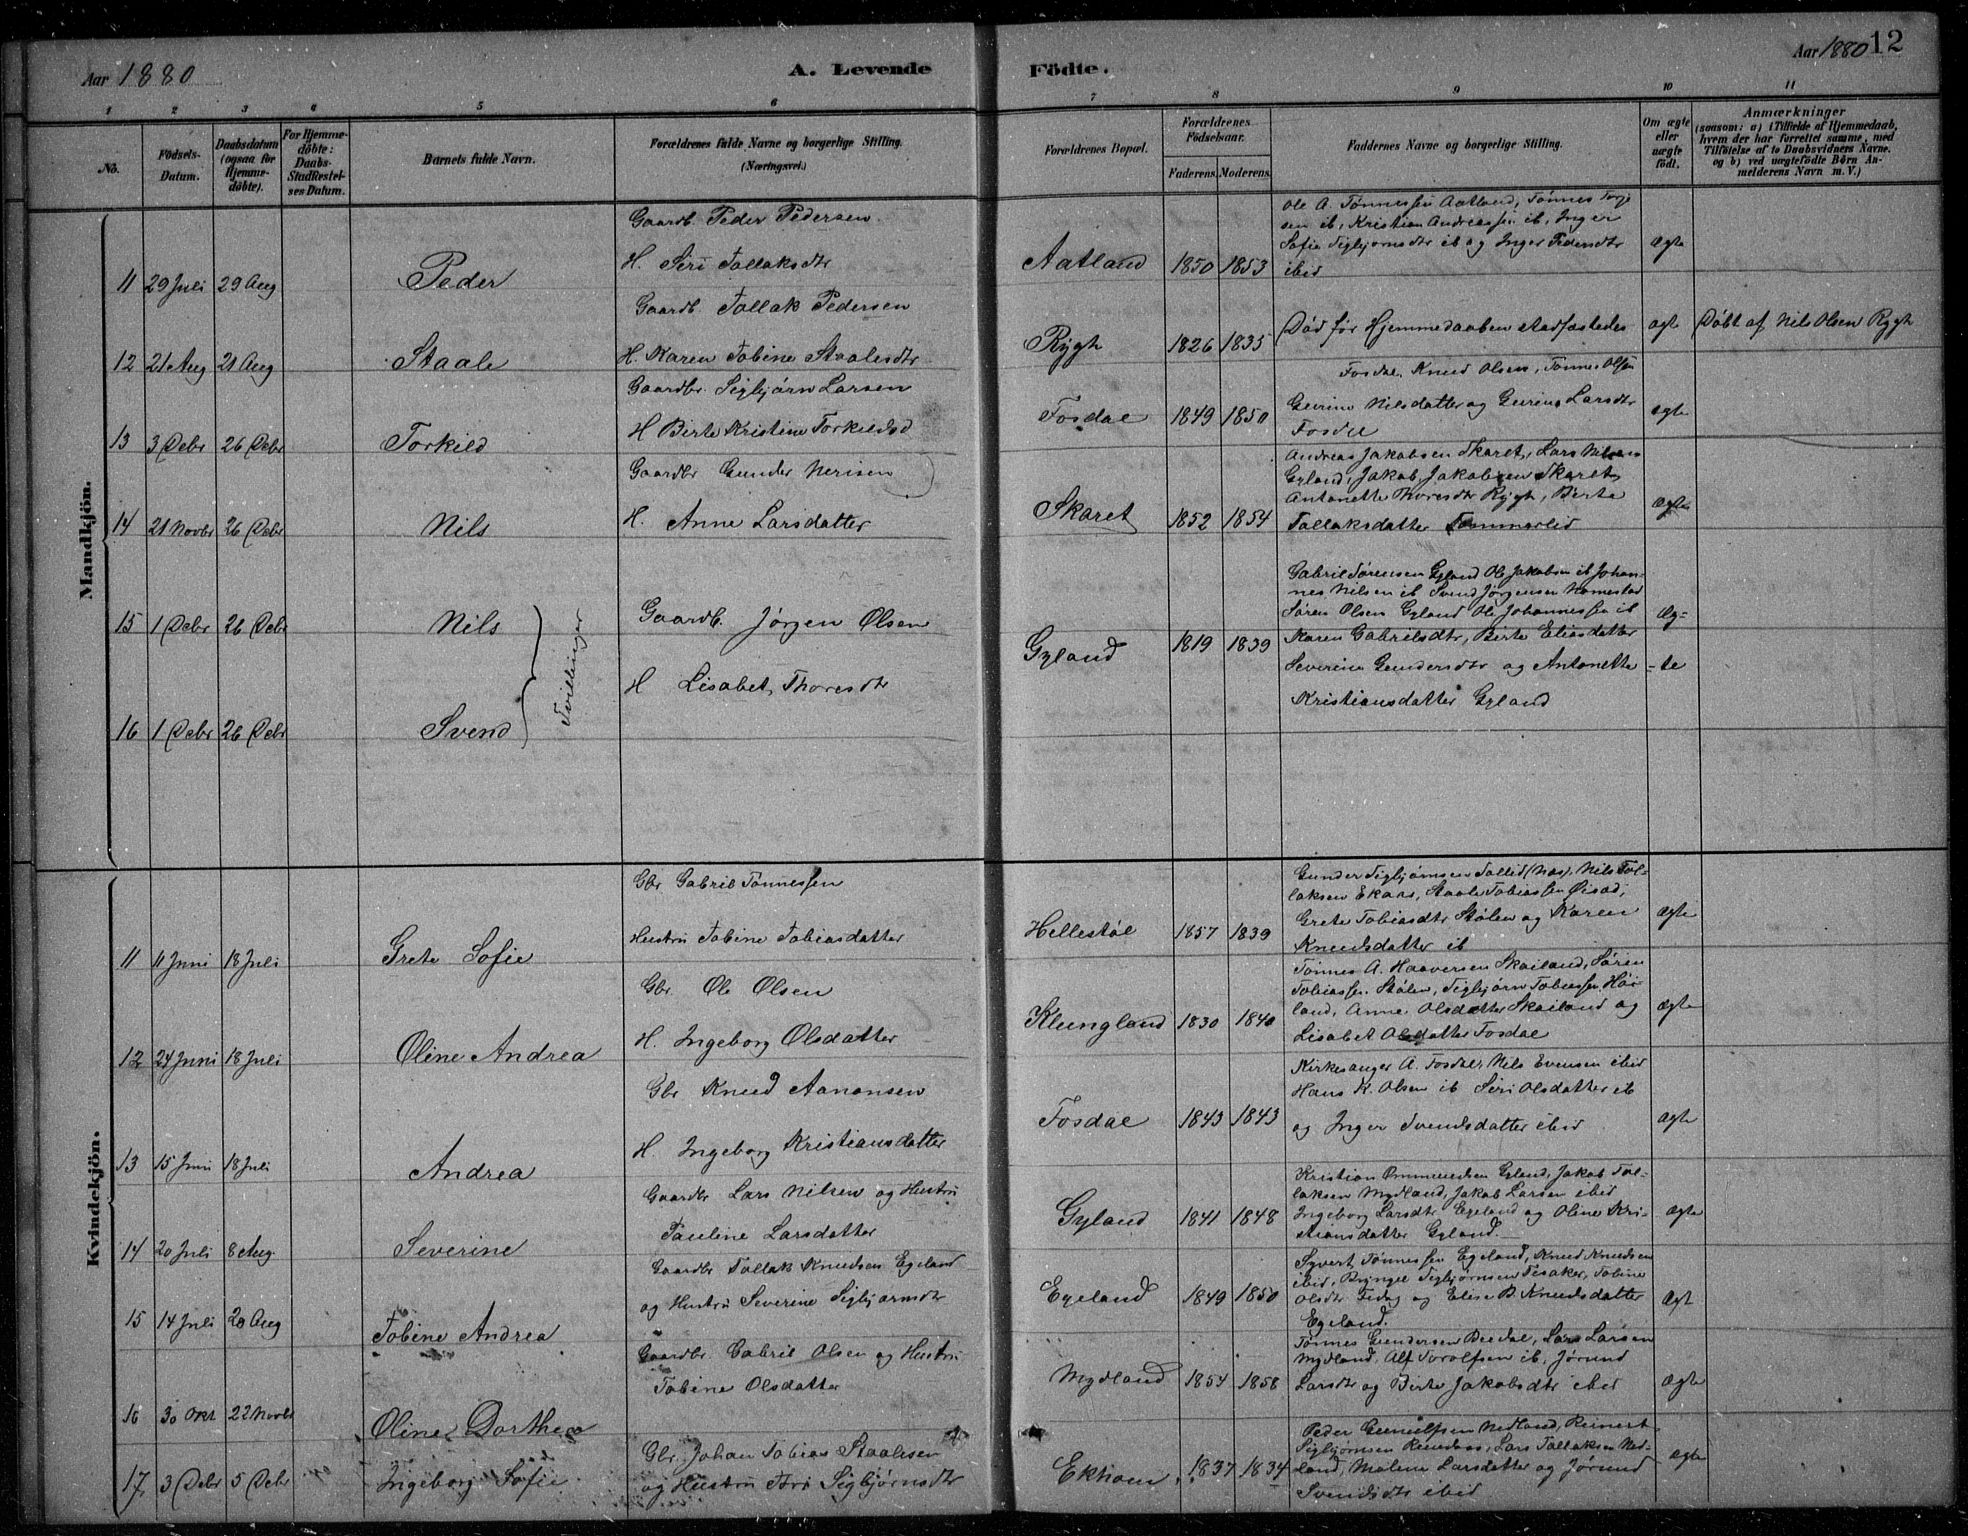 Aar 1880
A. Levende Födte.
Aar 1880 12
1 2 3 4 5 6 7 8 9 10 11
No.
Födsels-Datum.
Daabsdatum (ogsaa for Hjemme-döbte).
For Hjemme-döbte: Daabs-Stadfæstel-ses-Datum.
Barnets fulde Navn.
Forældrenes fulde Navne og borgerlige Stilling.
(Næringsvei.)
Forældrenes Bopæl.
Forældrenes Födselsaar.
Faderens. Moderens.
Faddernes Navne og borgerlige Stilling.
Om ægte eller uægte födt.
Anmærkninger
(saasom: a) i Tilfælde af Hjemmedaab,
hvem der har forrettet samme, med
Tilföielse af to Daabsvidners Navne.
og b) ved uægtefödte Börn An-
melderens Navn m. V.)
Mandkjön.
11 29 Juli 29 Aug Peder
Gaardb. Peder Pedersen
H. Siri Tollaksdtr
Aatland 1850 1853
Ole A. Tønnessen Aatland, Tønnes Torje
sen ib, Kristian Andreassen ib, Inger
Sofie Sigbjørnsdtr ib og Inger Pedersdtr
ibid
Ægte
12 21 Aug 21 Aug Staale
Gaardb. Tollak Pedersen
H. Karen Tobine Staalesdtr
Rygh 1826 1835
Død før Hjemmedaaben stadfæstedes
ægte
Døbt af Nils Olsen Rygh
13 3 Debr 26 Debr Torkild
Gaardbr. Sigbjørn Larsen
H Birte Kristine Torkildsd
Fosdal 1849 1850
Fosdal, Knud Olsen, Tønnes Olsen
Gurine Nilsdatter og Gurine Larsdtr
Fosdal
ægte
14 21 Novbr 26 Debr Nils
Gaardbr Gunder Nerisen
H. Anne Larsdatter
Skaret 1852 1854
Andreas Jakobsen Skaret, Lars Nilsens
Gyland, Jakob Jakobsen Skaret,
Antonette Thoresdtr Rygh, Birte
Tollaksdatter Tommerlid
Ægte
15 1 Debr 26 Debr Nils
Tvillinger
Gaardb. Jørgen Olsen
H Lisabet Thoresdtr
Gyland 1819 1839
Gabriel Sørensen Gyland Ole Jakobsen ib Johan-
nes Nilsen ib Svend Jørgensen Homestad
Søren Olsen Gyland Ole Johannessen ib
Karen Gabrielsdtr, Birte Eliasdatter
Severine Gundersdtr og Antonette
Kristiansdatter Gyland
Æg-
-te
16 1 Debr 26 Debr Svend
Kvindekjön.
11 11 Juni 18 Juli Grete Sofie
Gbr Gabriel Tønnessen
Hustru Tobine Tobiasdatter
Hellestøl 1857 1839
Gunder Sigbjørnsen Sollid (Næs), Nils Tol-
laksen Ekaas, Staale Tobiassen Øisæd,
Grete Tobiasdtr Stølen og Karen
Knudsdatter ib
Ægte
12 24 Juni 18 Juli Oline Andrea
Gbr. Ole Olsen
H. Ingeborg Olsdatter
Klungland 1830 1840
Tønnes A. Haaversen Skailand, Søren
Tobiassen Stølen, Sigbjørn Tobiassen Høi-
land, Anne Olsdatter Skailand og
Lisabet Olsdatter Fosdal
Ægte
13 15 Juni 18 Juli Andrea
Gbr Knud Aanonsen
H. Ingeborg Kristiansdatter
Fosdal 1843 1843
Kirkesanger A. Fosdal, Nils Evensen ibid
Hans K. Olsen ib Siri Olsdatter ib
og Inger Svendsdatter ibid
Ægte
14 20 Juli 8 Aug Severine
Gaardbr Lars Nilsen og Hustru
Pauline Larsdatter
Gyland 1841 1848
Kristian Ommundsen Gyland, Jakob Tol-
laksen Mydland, Jakob Larsen ibid
Ingeborg Larsdtr Egeland og Oline Kri-
stiansdatter Gyland.
Ægte
15 14 Juli 20 Aug Tobine Andrea
Gaardbr Tollak Knudsen Egeland
og Hustru Severine Sigbjørnsdtr
Egeland 1849 1850
Syvert Tønnessen Egeland, Knud Knudsen
ibid, Bringel Sigbjørnsen Fesaker, Tobine
Olsdtr og Elise B. Knudsdatter
Egeland.
Ægt
16 30 Okt 22 Novbr Oline Dorthea
Gaardbr. Gabriel Olsen og Hustru
Tobine Olsdatter
Mydland 1854 1858
Tønnes Gundersen Bredal, Lars Larsen
Mydland, Alf Torolfsen ib, Jørund
Larsdtr og Birte Jakobsdtr ibid
Ægte
17 3 Debr 5 Debr Ingeborg Sofie
Gbr. Johan Tobias Staalesen
og Hustru Siri Sigbjørnsdtr
Ekhom 1837 1834
Peder Gunulfsen Nedland, Reinert
Sigbjørnsen, Lars Tollaksen Ned-
land, Malene Larsdatter og Jørund
Svendsdtr ibid
ægte